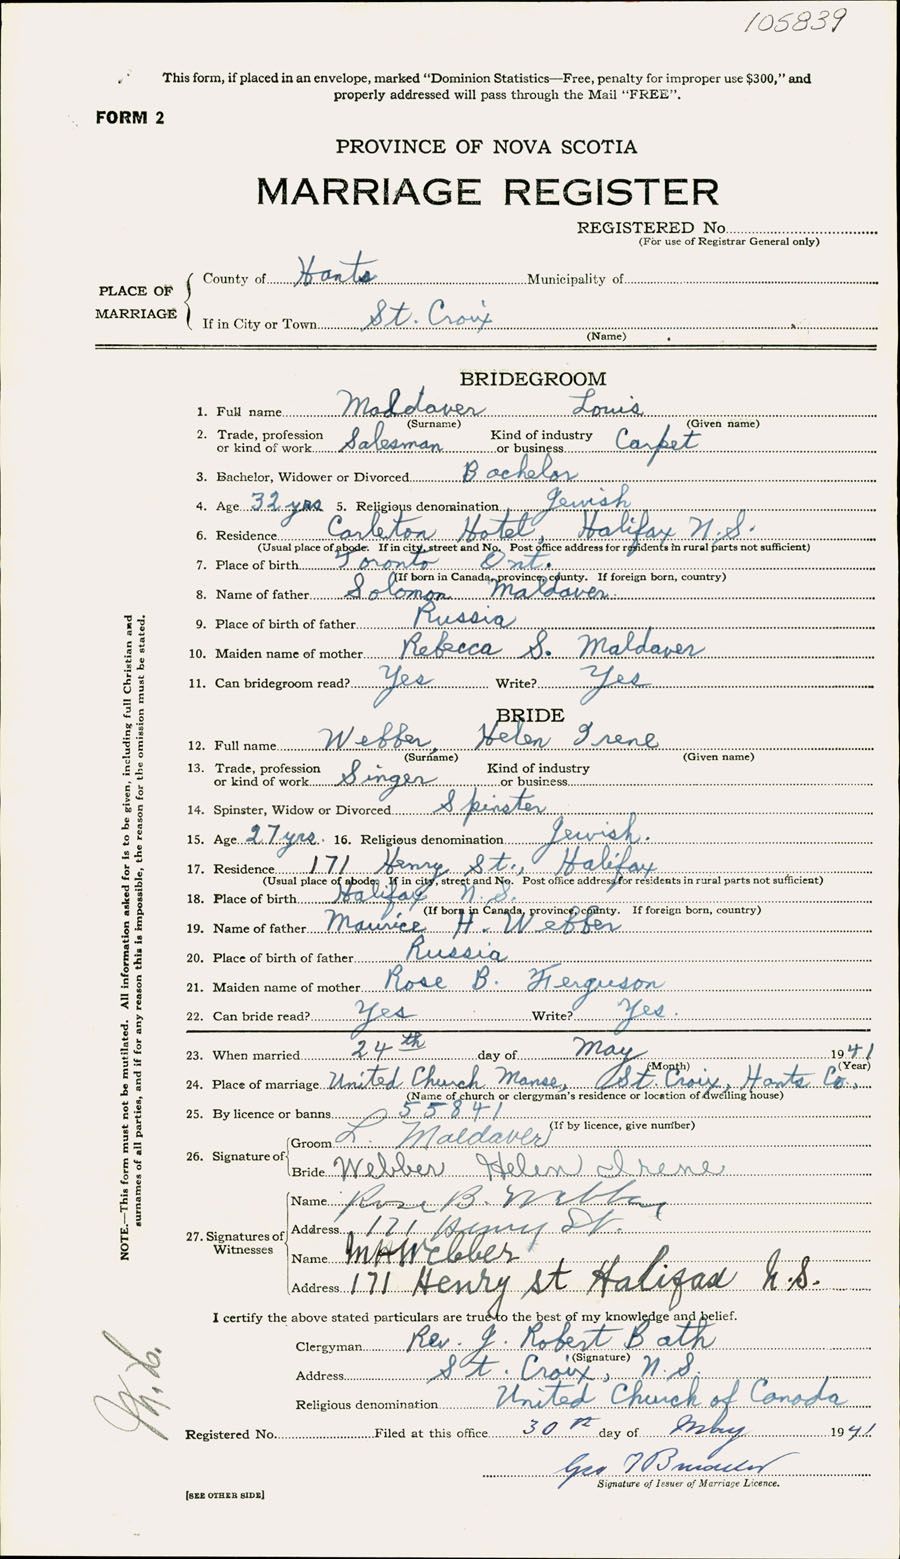 105839
This form, if placed in an envelope, marked "Dominion Statistics—Free, penalty for improper use $300," and
properly addressed will pass through the Mail "FREE".
FORM 2
PROVINCE OF NOVA SCOTIA
MARRIAGE REGISTER
REGISTERED No.
(For use of Registrar General only)
PLACE OF MARRIAGE
County of Hants Municipality of
If in City or Town St. Croix
(Name)
BRIDEGROOM
1. Full name Maldaver Louis
(Surname) (Given name)
2. Trade, profession or kind of work Salesman Kind of industry or business Carpet
3. Bachelor, Widower or Divorced Bachelor
4. Age 32 yrs 5. Religious denomination Jewish
6. Residence Carleton Hotel, Halifax N.S.
(Usual place of abode. If in city, street and No. Post office address for residents in rural parts not sufficient)
7. Place of birth Toronto Ont.
(If born in Canada, province, county. If foreign born, country)
8. Name of father Solomon Maldaver.
9. Place of birth of father Russia
10. Maiden name of mother Rebecca S. Maldaver
11. Can bridegroom read? Yes Write? Yes
BRIDE
12. Full name Webber, Helen Irene
(Surname) (Given name)
13. Trade, profession or kind of work Singer Kind of industry or business
14. Spinster, Widow or Divorced Spinster
15. Age 27 yrs. 16. Religious denomination Jewish.
17. Residence 171 Henry St., Halifax
(Usual place of abode. If in city, street and No. Post office address for residents in rural parts not sufficient)
18. Place of birth Halifax N.S.
(If born in Canada, province, county. If foreign born, country)
19. Name of father Maurice H. Webber
20. Place of birth of father Russia
21. Maiden name of mother Rose B. Ferguson
22. Can bride read? Yes Write? Yes.
23. When married 24th day of May 1941
(Month) (Year)
24. Place of marriage United Church Manse, St. Croix, Hants Co.,
(Name of church or clergyman's residence or location of dwelling house)
25. By licence or banns 55841
(If by licence, give number)
26. Signature of
Groom L. Maldaver
Bride Webber Helen Irene
27. Signatures of Witnesses
Name Rose B. Webber
Address 171 Henry St.
Name M H Webber
Address 171 Henry st Halifax N.S.
I certify the above stated particulars are true to the best of my knowledge and belief.
Clergyman Rev. J. Robert Bath
(Signature)
Address St. Croix, N.S.
Religious denomination United Church of Canada
Registered No. Filed at this office 30th day of May 1941
Geo
Signature of Issuer of Marriage Licence.
[SEE OTHER SIDE]
NOTE.—This form must not be mutilated. All information asked for is to be given, including full Christian and
surnames of all parties, and if for any reason this is impossible, the reason for the omission must be stated.